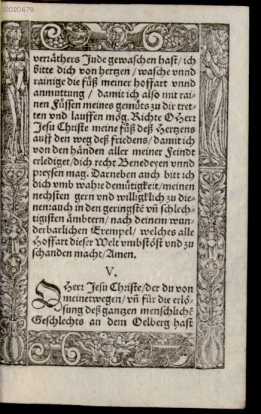 verräthers Jude gewaschen hast/ich
bitte dich von hertzen/wasche vnnd
rainige die füß meiner hoffart vnnd
anmuttung / damit ich also mit rai-
nen Füssen meines gemüts zu dir tret-
ten vnd lauffen mög. Richte O Herr
Jesu Christe meine füß deß Hertzens
auff den weg deß friedens/damit ich
von den händen aller meiner Feindt
erlediget/dich recht Benedeyen vnnd
preysen mag. Darneben auch bitt ich
dich vmb wahre demütigkeit/meinen
nechsten gern vnd williglich zu die-
nen: auch in den geringstẽ vñ schlech-
tigisten ämbtern/nach deinem wun-
derbarlichen Exempel/ welches alle
Hoffart dieser Welt vmbstöst vnd zu
schanden macht/Amen.
V.
O Herr Jesu Christe/der du von
meinetwegen/vñ für die erlö-
sung deß gantzen menschlichẽ
Geschlechts an dem Oelberg hast